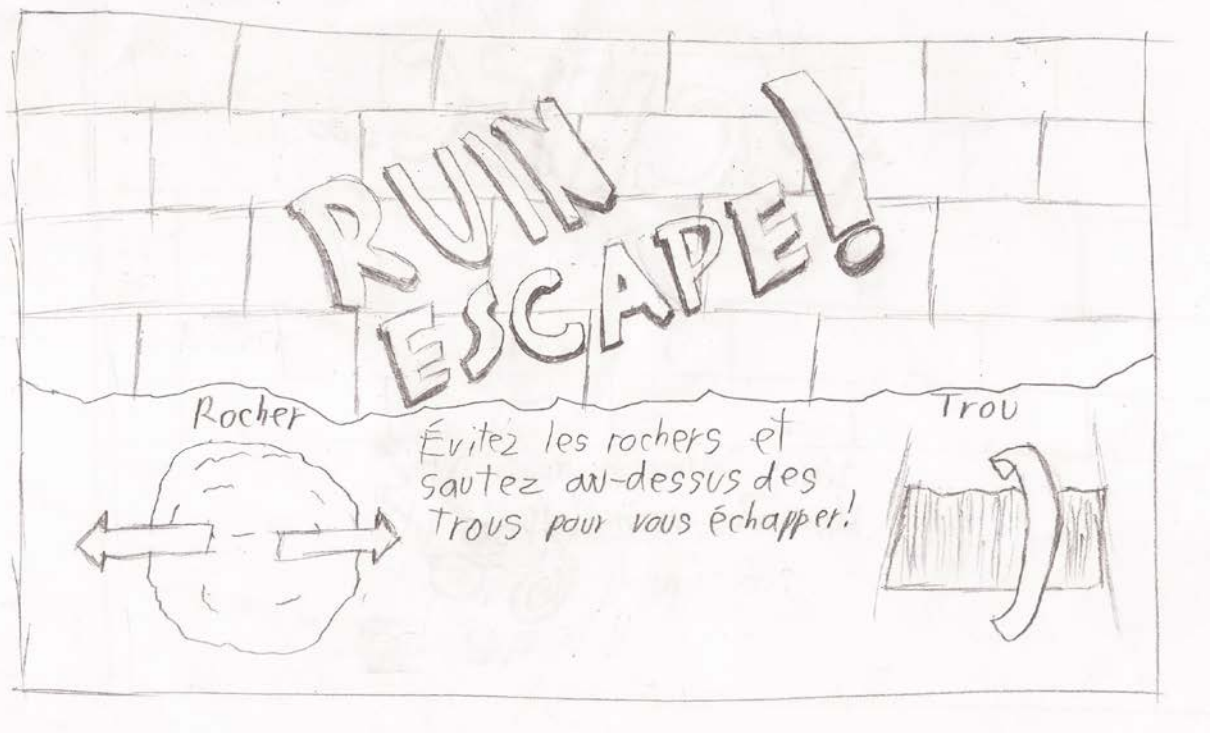 RUIN
ESCAPE!
Rocher
Évitez les rochers et
sautez au-dessus des
trous pour vous échapper!
Trou